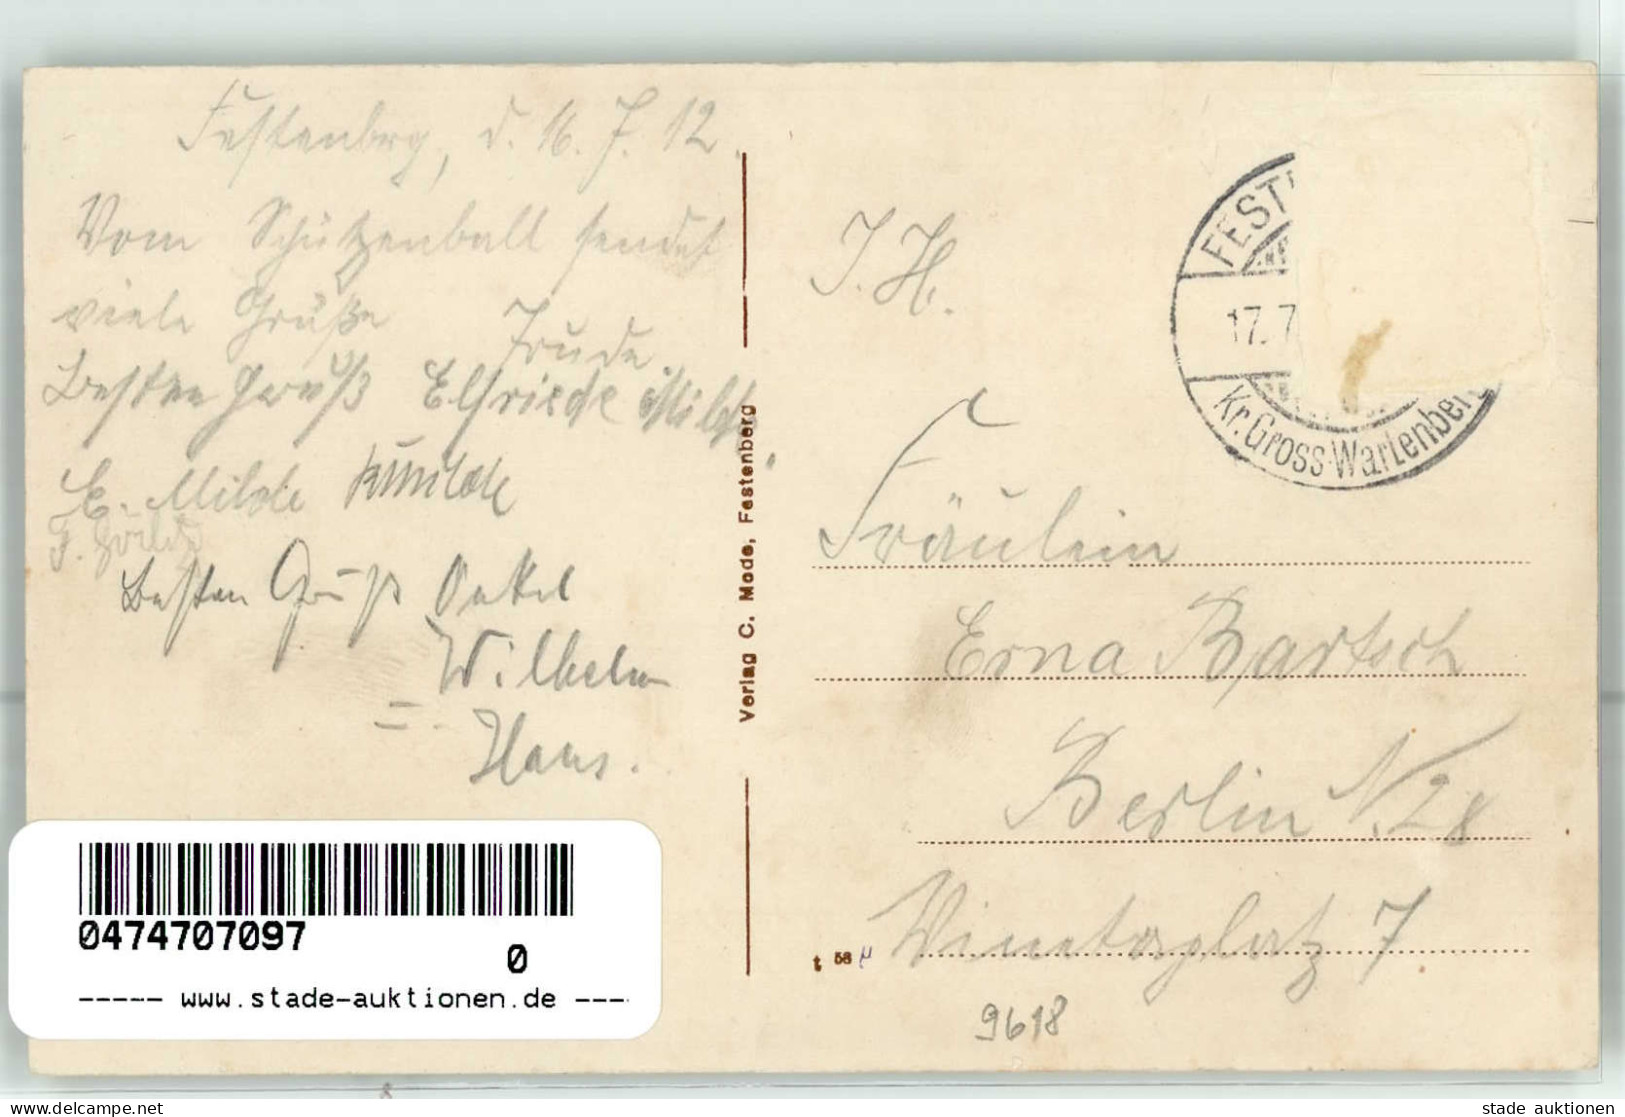 Festenbrg, d. 16. 7. 12.
Vom Schützenball sendet
viele Grüße Trude
Besten Gruß Elfriede Milde
E. Milde K Milde
Besten Gruß Onkel
Wilhelm
Hans.
Verlag C. Mode, Festenberg
FEST
17. 7
Kr. Gross-Wartenberg
Fräulein
Erna Bartsch
Berlin N. 28
Vinetaplatz 7
t 58
9618
0474707097
0
----- www.stade-auktionen.de ----
stade auktionen
delcampe.net